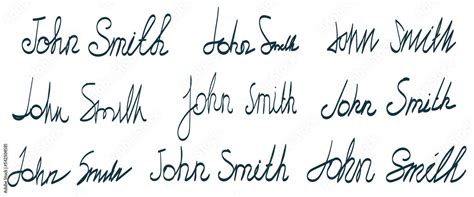 John Smith John Smith John Smith
John Smith John Smith John Smith
John Smith John Smith John Smith
Adobe Stock